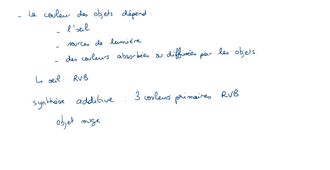 - La couleur des objets dépend :
- l'œil
- sources de lumière
- des couleurs absorbées ou diffusées par les objets.
L'œil : RVB
synthèse additive : 3 couleurs primaires RVB
objet rouge